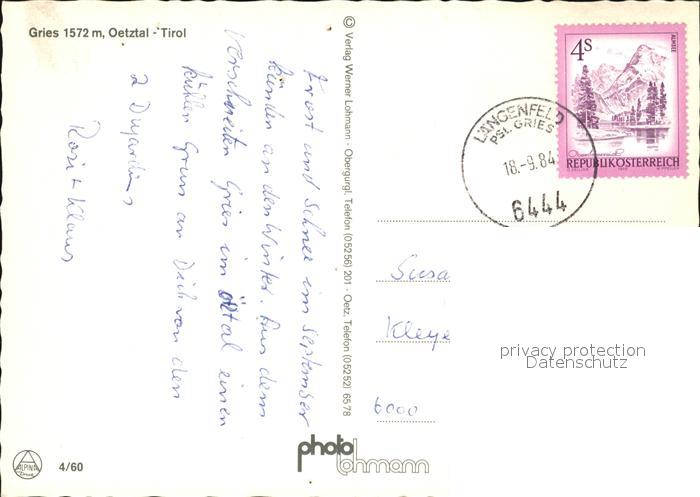 Gries 1572 m, Oetztal - Tirol
Frost und Schnee im September
künden an den Winter. Aus dem
verschneiten Gries im Ötztal einen
kühlen Gruss an Dich von den
2 Dujardins
Rosi + Klaus
© Verlag Werner Lohmann - Obergurgl, Telefon (05256) 201 - Oetz, Telefon (05252) 6578
4S
ALMSEE
REPUBLIK ÖSTERREICH
LÄNGENFELD
PSt. GRIES
18.-9.84
6444
Susa
Kleye
6000
privacy protection
Datenschutz
photo
lohmann
ALPINA
4/60